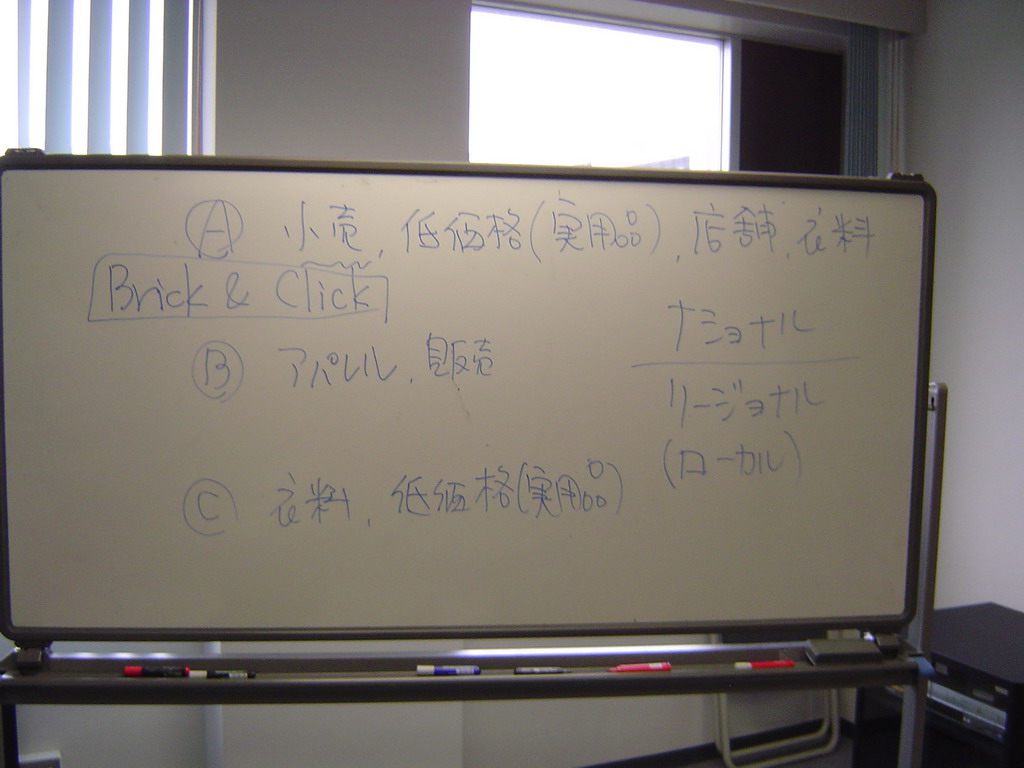 Ⓐ 小売, 低価格(実用品), 店舗, 衣料
Brick & Click
Ⓑ アパレル, 自販売
ナショナル
リージョナル
(ローカル)
Ⓒ 衣料, 低価格(実用品)